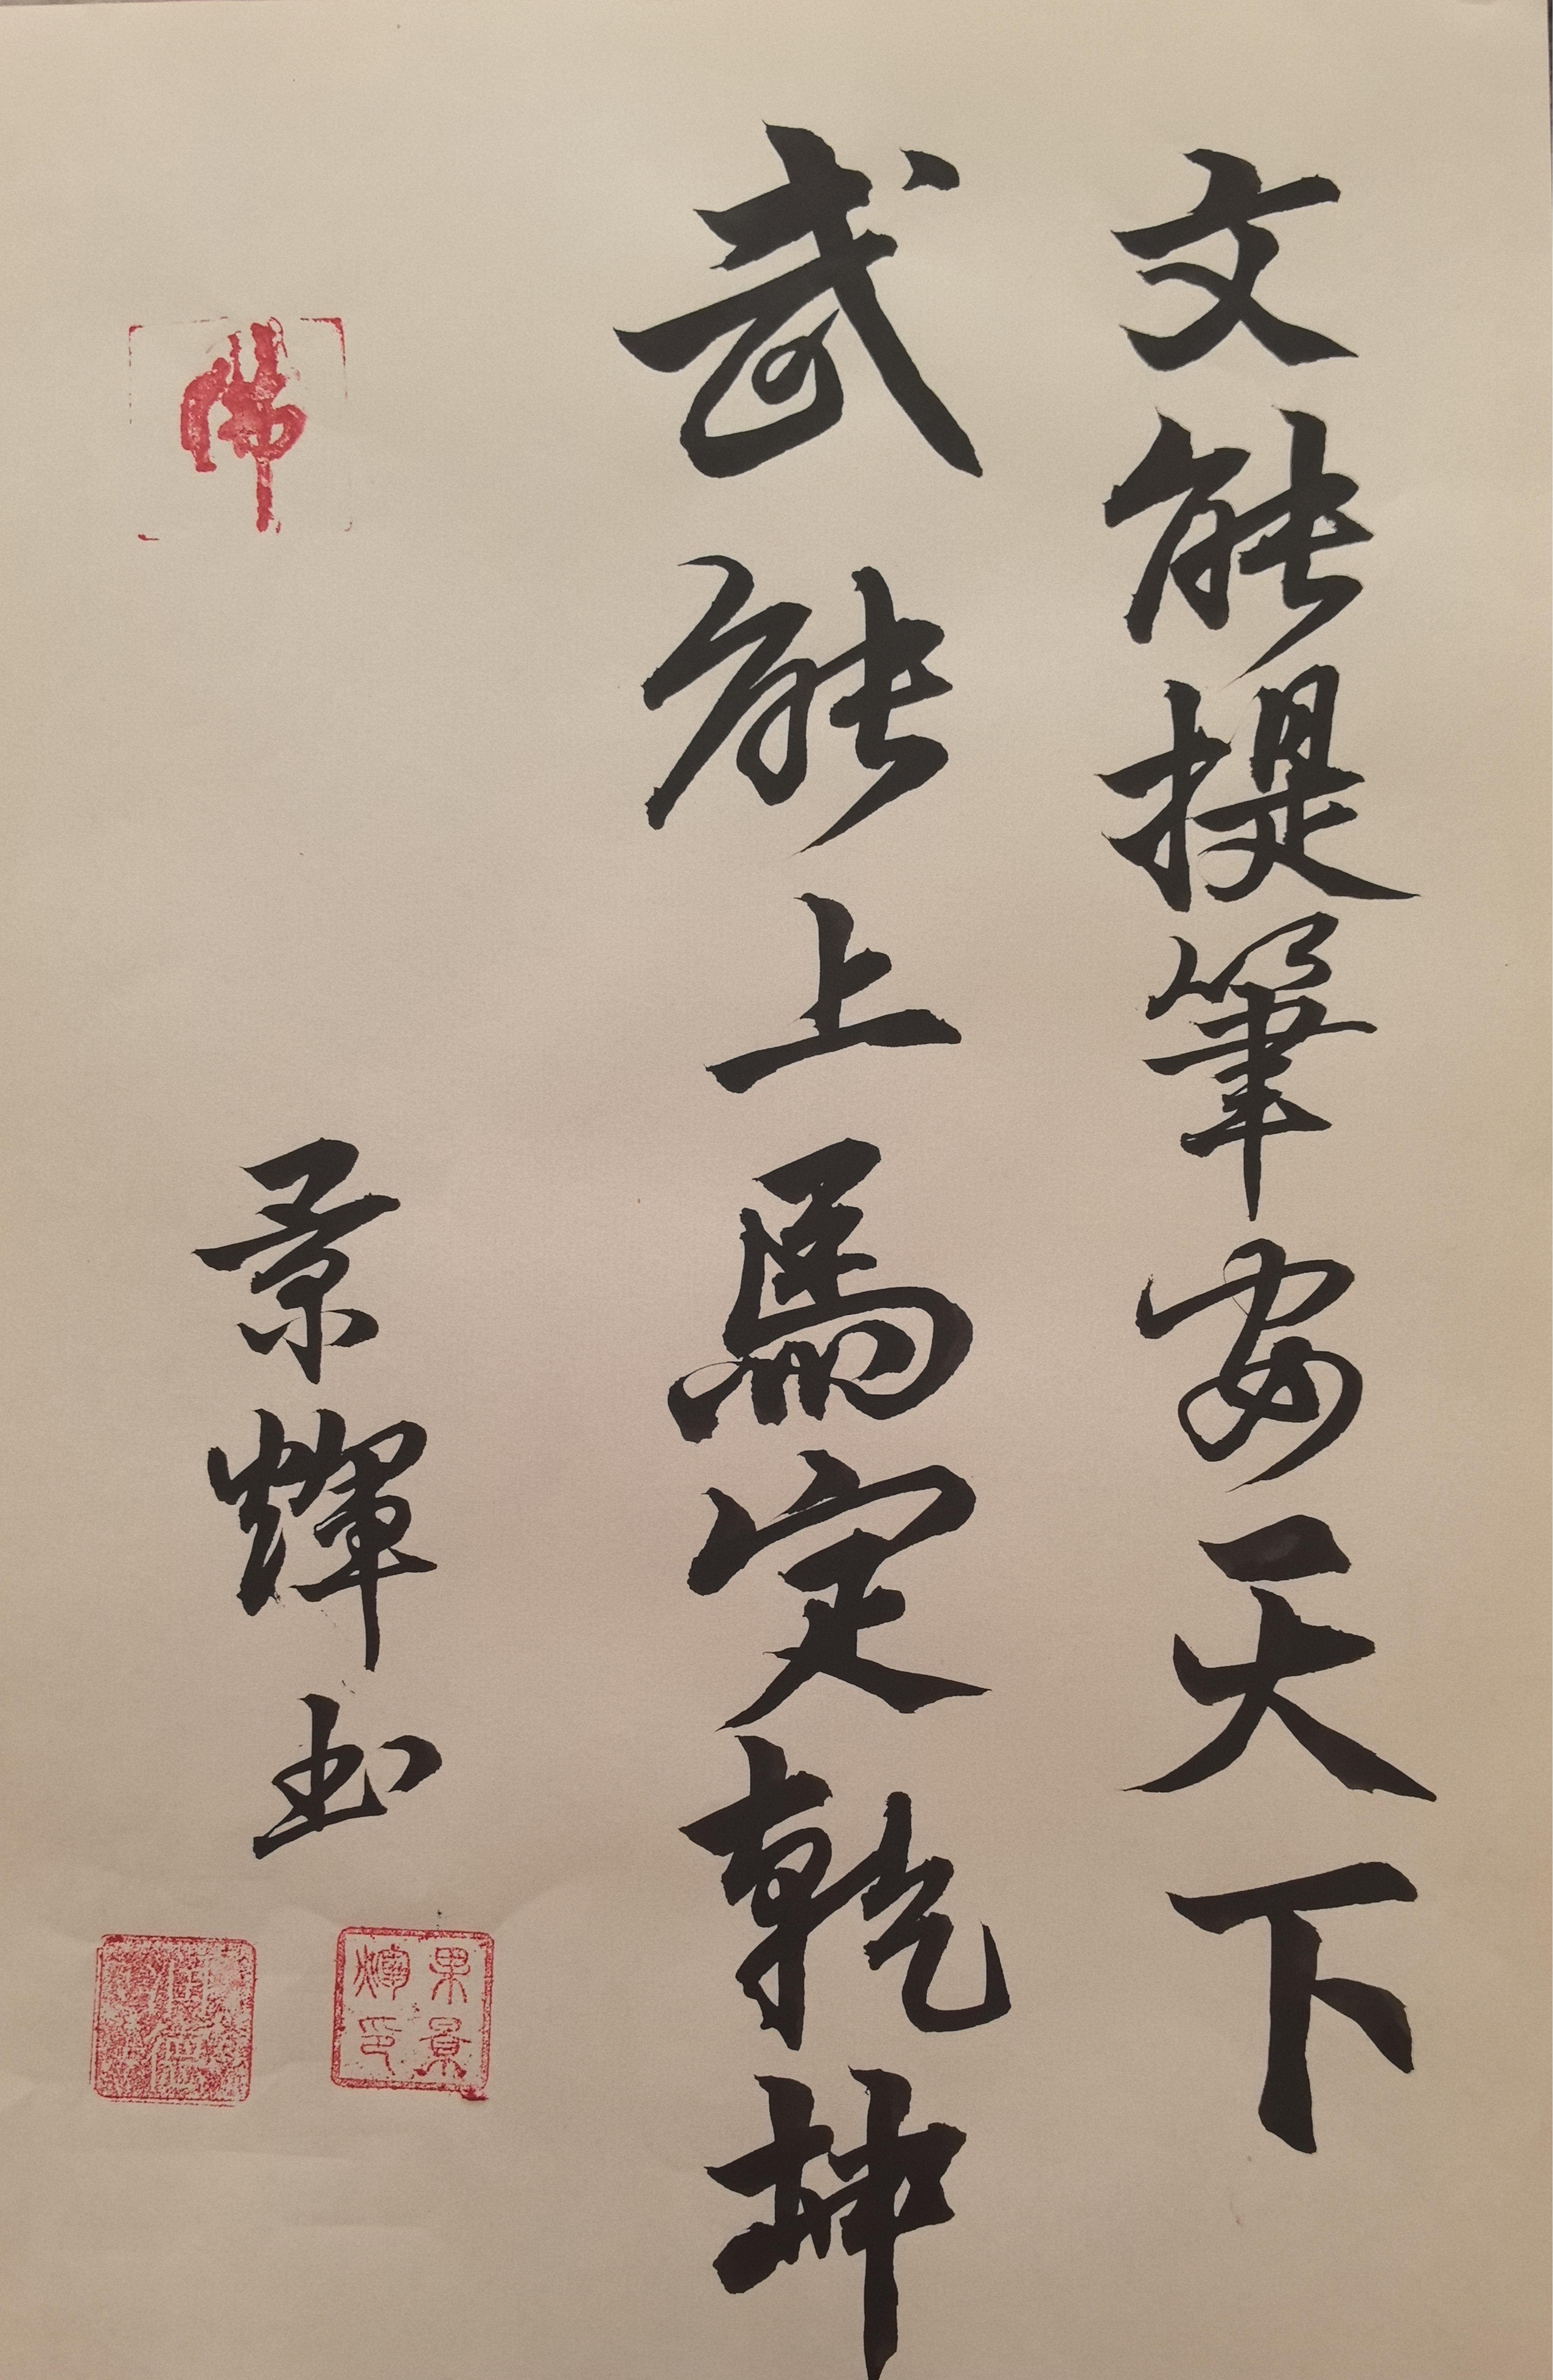 文能提筆安天下
武能上馬定乾坤
景輝书
佛
果景
輝印